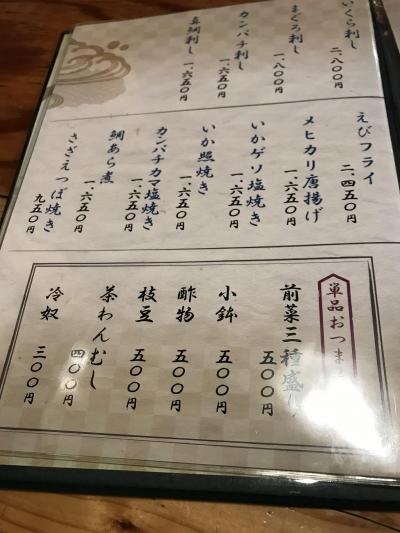 いくら刺し
二、八〇〇円
まぐろ刺し
一、八〇〇円
カンパチ刺し
一、六五〇円
真鯛刺し
一、六五〇円
えびフライ
二、四五〇円
メヒカリ唐揚げ
一、六五〇円
いかゲソ塩焼き
一、六五〇円
いか照焼き
一、六五〇円
カンパチカマ塩焼き
一、六五〇円
鯛あら煮
一、六五〇円
さざえつぼ焼き
九五〇円
単品おつま
前菜三種盛り
五〇〇円
小鉢
五〇〇円
酢物
五〇〇円
枝豆
五〇〇円
茶わんむし
四〇〇円
冷奴
三〇〇円